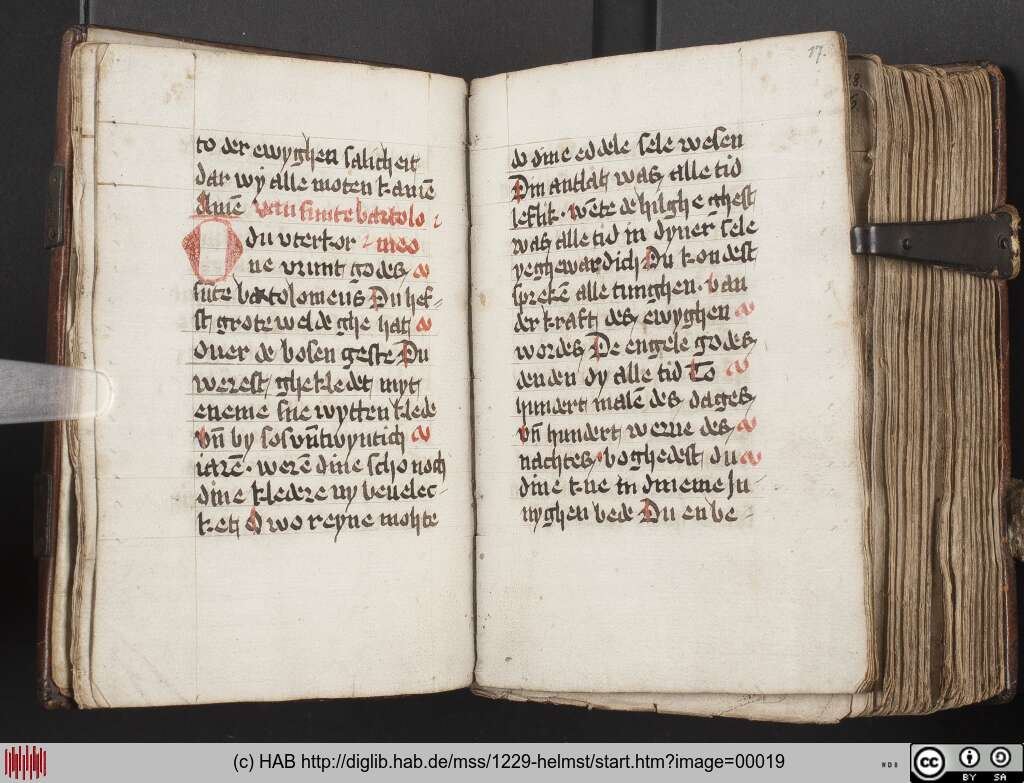 to der ewyghen salicheit
dar wy alle moten kamē
Amē van sinte bartolo
O du vterkor meo
ne vrunt godes
sūte bartolomeus Du hef-
st grote welde ghe hat
ouer de bosen geste Du
werest ghekledet myt
eneme sne wytten klede
vn̄ by sos vn̄ twyntich
iarē. werē dine scho noch
dine kledere ny bevlec-
ket O wo reyne mohte
17.
do dine eddele sele wesen
Din antlat was alle tid
leflik. wēte de hilghe ghest
was alle tid in dyner sele
yeghewardich Du kondest
sprekē alle tunghen. van
der kraft des ewyghen
wordes De engele godes
denden dy alle tid To
hundert malē des dages
vn̄ hundert werue des
nachtes. boghedest du
dine kne in dineme In-
nyghen bede Du en be
(c) HAB http://diglib.hab.de/mss/1229-helmst/start.htm?image=00019
WDB
cc BY SA